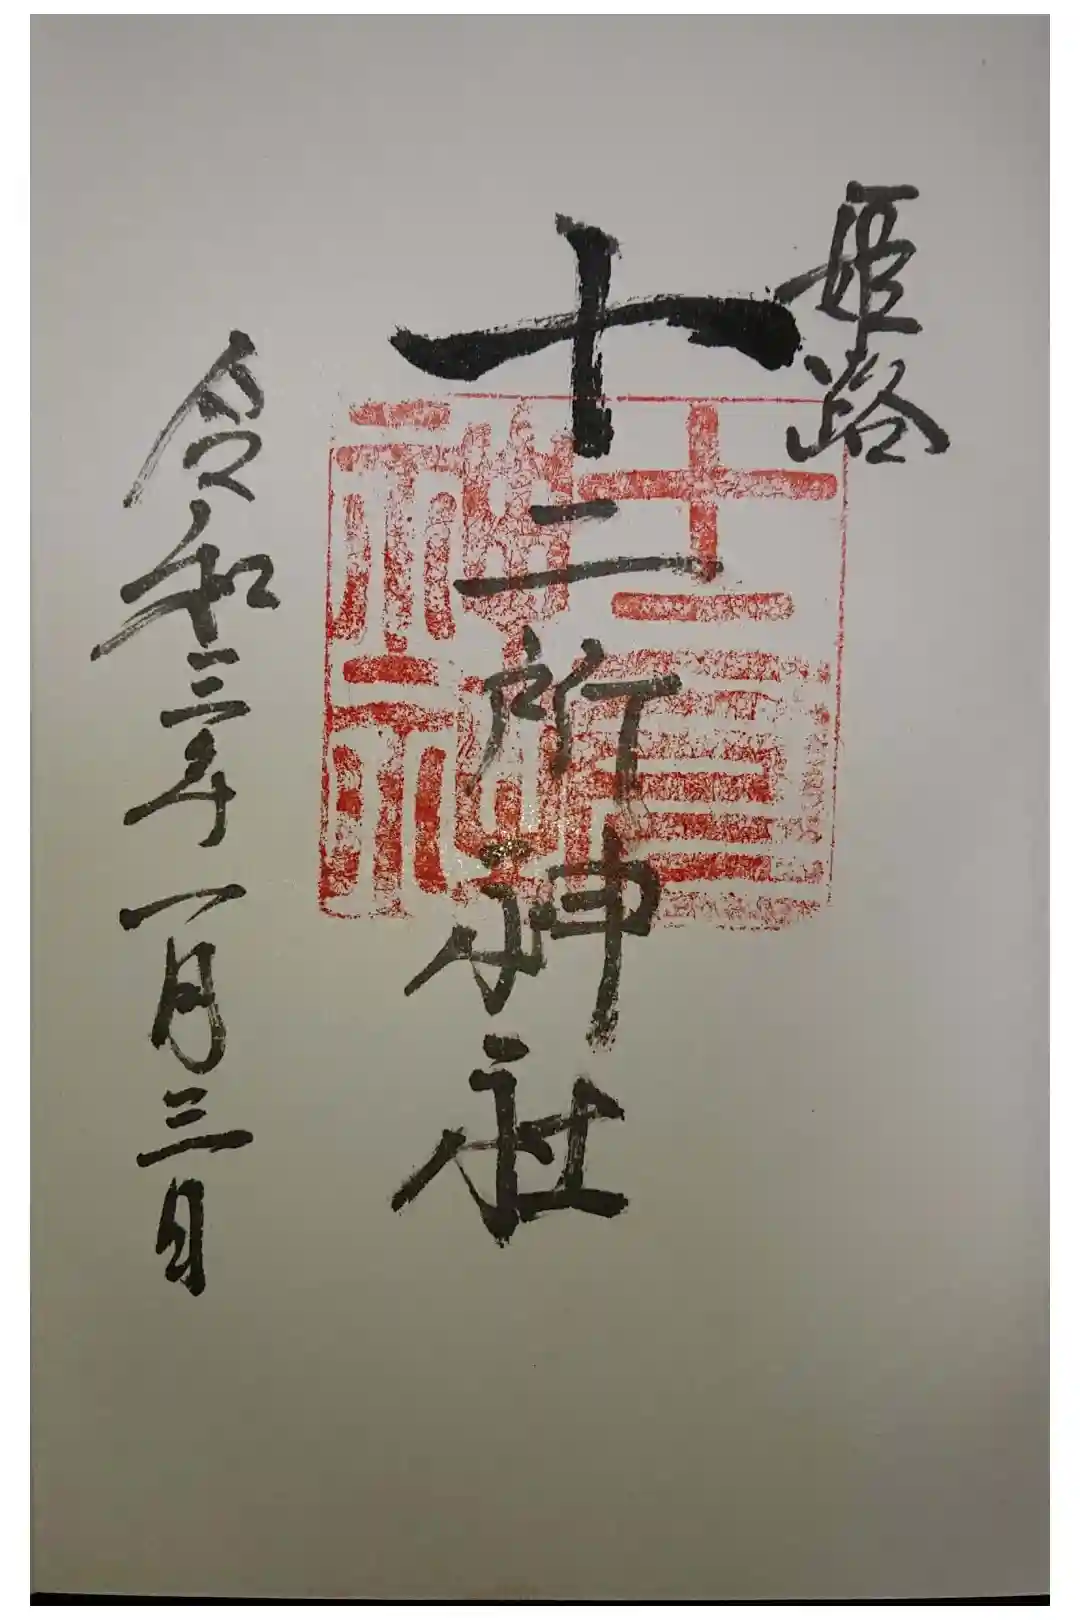 姫路
十二所神社
令和三年一月三日
十二所神社